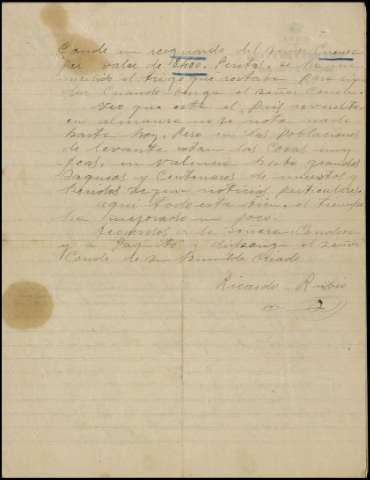 Conde un resguardo del señor Cuenca
por valor de 2400 Pesetas. se ha
el trigo que restaba para
cuando venga el señor Conde.
Veo que esta el Pais revuelto
en almansa no se nota nada
hasta hoy. Pero en las Poblaciones
de levante andan las Cosas muy
feas, en Valencia hubo grandes
Saqueos y Centenares de muertos y
heridos segun noticias particulares.
aqui todo esta bien. el tiempo
ha mejorado un poco.
Recuerdos a la Señora Condesa
y a Paquito y disponga el señor
Conde de su Humilde Criado
Ricardo Rubio